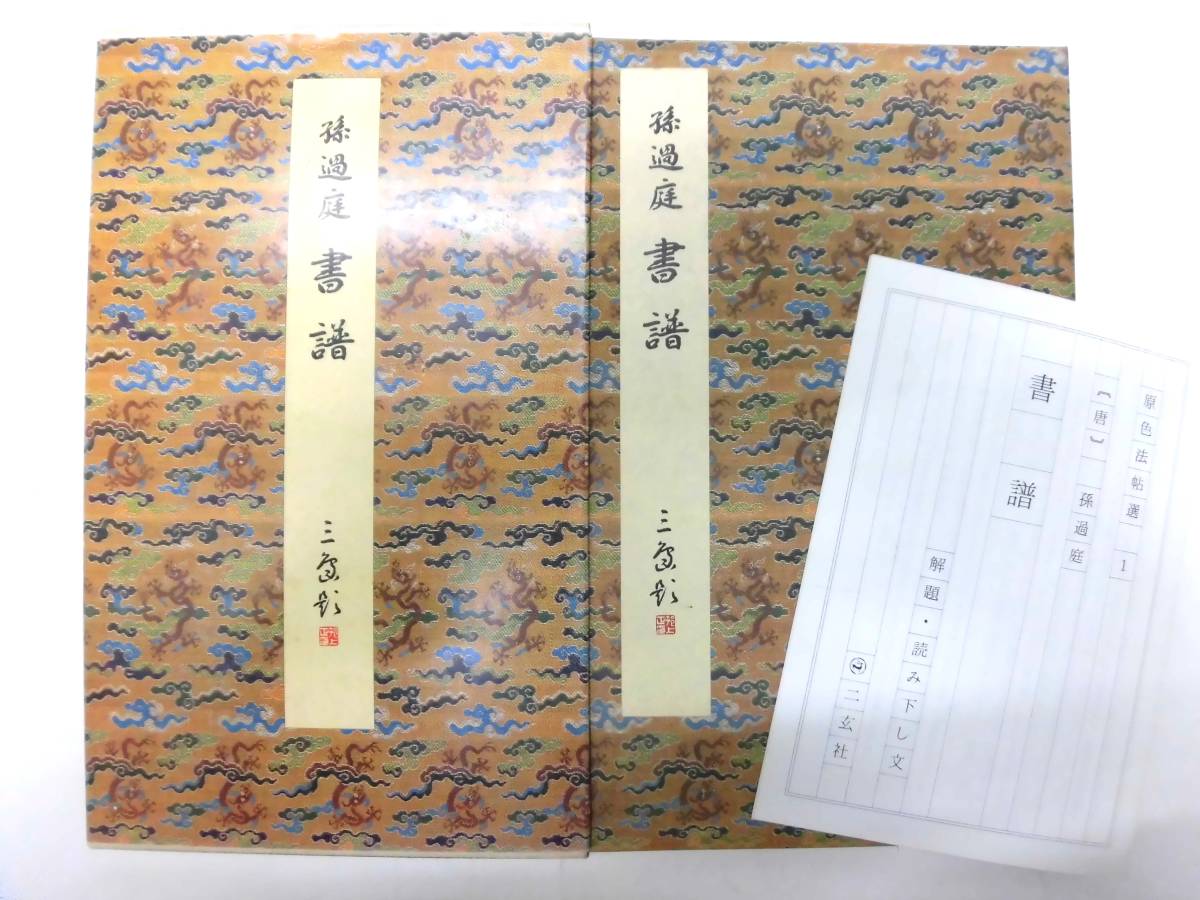 孫過庭 書譜
三
孫過庭 書譜
三
原色法帖選 1
〔唐〕 孫過庭
書譜
解題・読み下し文
二玄社